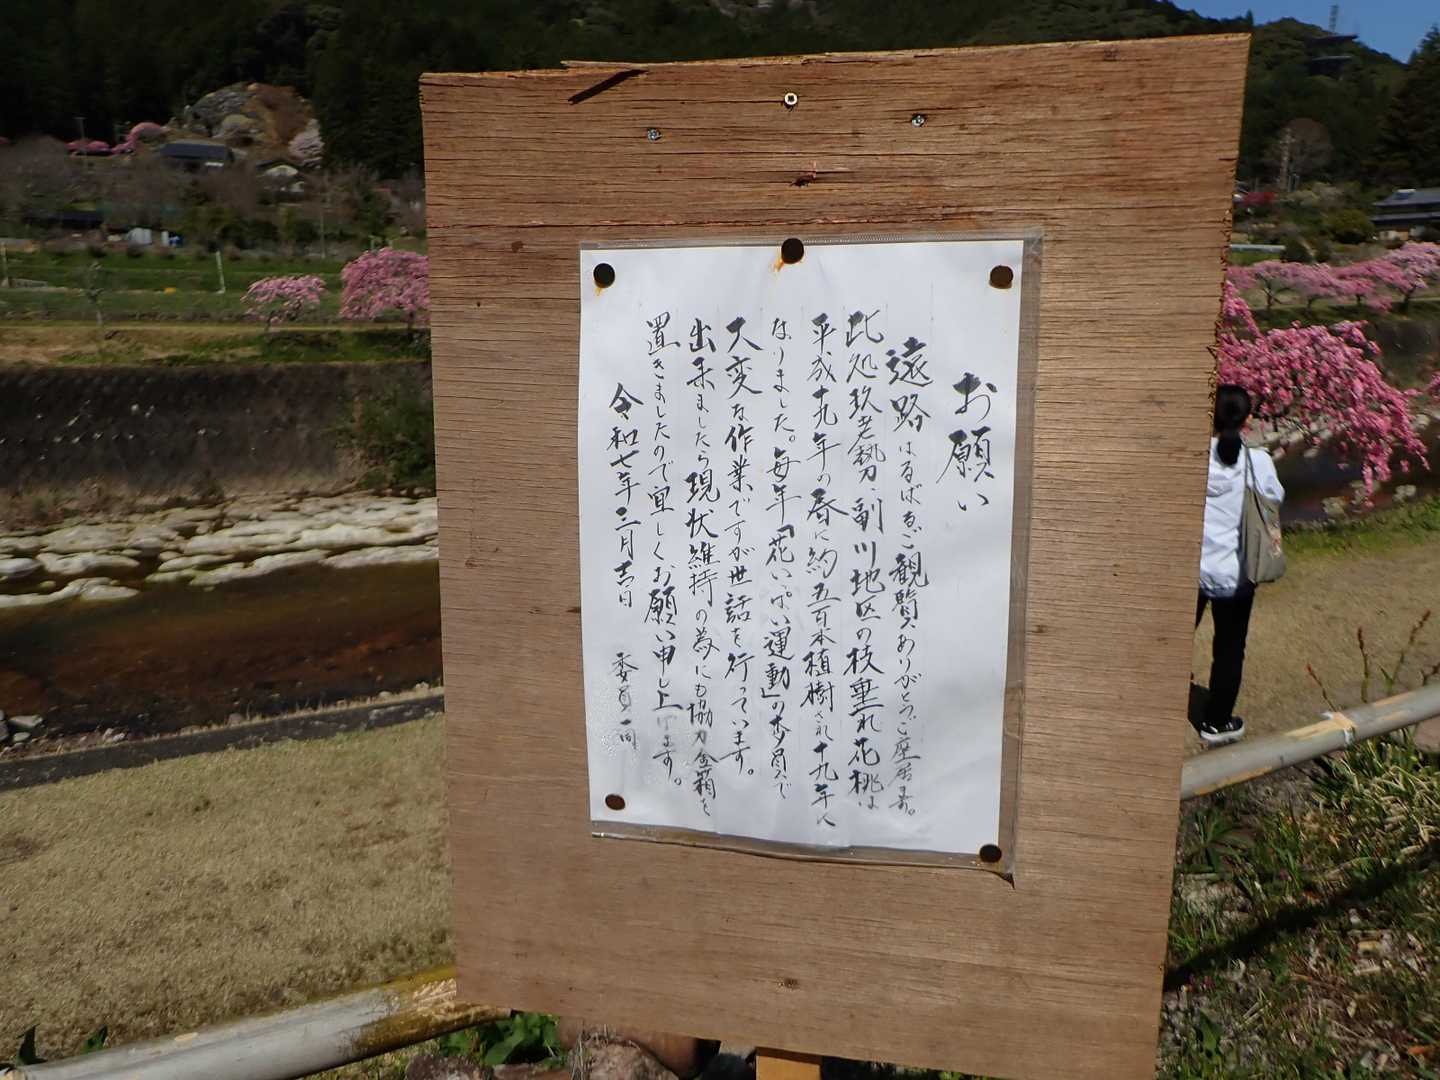 お願い
遠路はるばるご観覧ありがとうご座居ます。
此処玖老勢、副川地区の枝垂れ花桃は
平成十九年の春に約五百本植樹され十九年に
なりました。毎年「花いっぱい運動」の委員で
大変な作業ですが世話を行っています。
出来ましたら現状維持の為にも協力金箱を
置きましたので宜しくお願い申し上げます。
令和七年三月吉日 委員一同